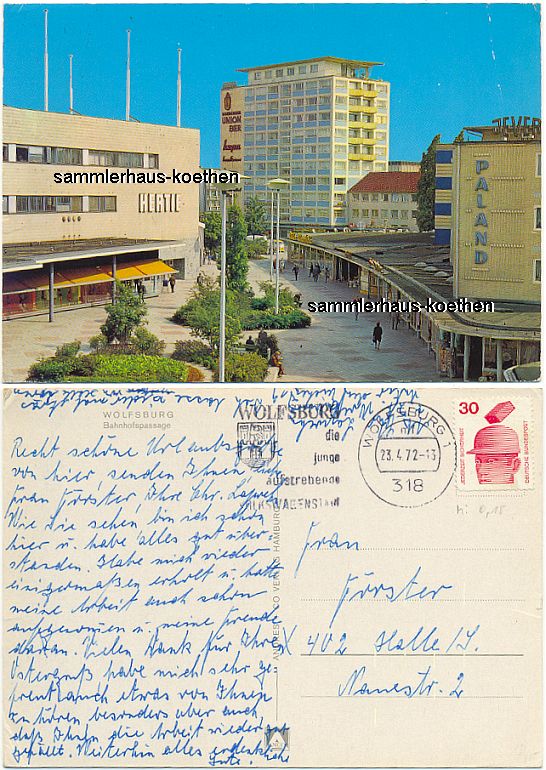 UNION
BIER
sammlerhaus-koethen
HERTIE
JEVER
PALAND
sammlerhaus-koethen
WOLFSBURG
Bahnhofspassage
WOLFSBURG
die
junge
aufstrebende
VOLKSWAGENSTADT
WOLFSBURG 1
23.4.72-13
318
30
DEUTSCHE BUNDESPOST
Recht schöne Urlaubsgrüße
von hier, senden Ihnen, liebe
Frau Förster, Ihre Chr.
Wie Sie sehen, bin ich schon
hier u. habe alles gut über
standen. Habe mich wieder
einigermaßen erholt u. hatte
meine Arbeit auch schon
aufgenommen u. meine Freude
daran. Vielen Dank für Ihren
Ostergruß habe mich sehr ge
freut auch etwas von Ihnen
zu hören besonders aber auch,
daß Ihnen die Arbeit wieder
gefällt. Weiterhin alles erdenklich
Gute.
Frau
Förster
402 Halle/S.
Nauestr. 2